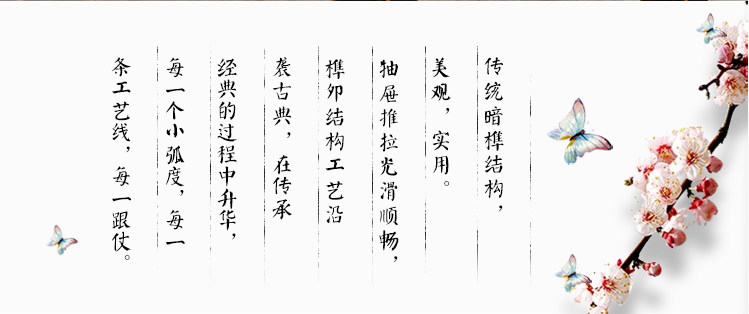 传统暗榫结构，
美观，实用。
抽屉推拉光滑顺畅，
榫卯结构工艺沿
袭古典，在传承
经典的过程中升华，
每一个小弧度，每一
条工艺线，每一跟仗。